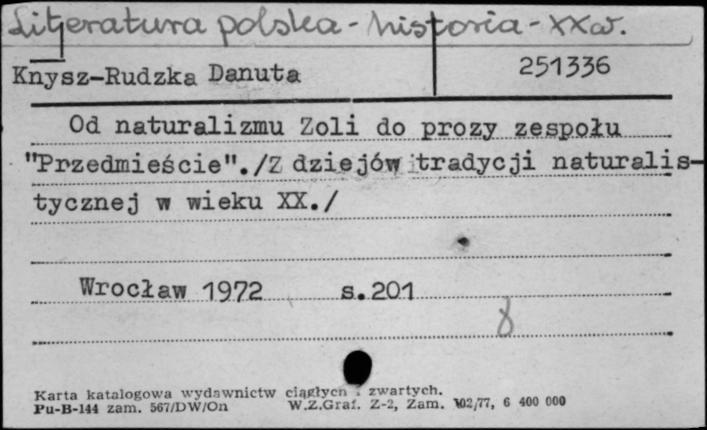 Literatura polska - historia - XX w.
Knysz-Rudzka Danuta
251336
Od naturalizmu Zoli do prozy zespołu
"Przedmieście"./Z dziejów tradycji naturalis-
tycznej w wieku XX./
Wrocław 1972 s.201
8
Karta katalogowa wydawnictw ciągłych i zwartych.
Pu-B-144 zam. 567/DW/On W.Z.Graf. Z-2, Zam. 102/77, 6 400 000